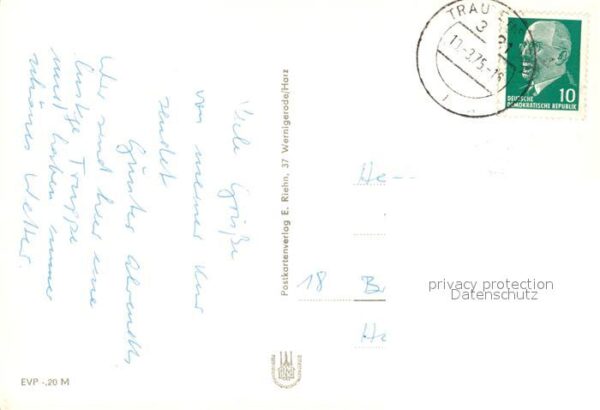 Viele Grüße
von meiner Kur
sendet
Günter
Wir sind hier eine
lustige Truppe
und haben immer
schönes Wetter.
Postkartenverlag E. Riehn, 37 Wernigerode/Harz
EVP -,20 M
TRAU
3
11.-3.75.-16
10
DEUTSCHE
DEMOKRATISCHE REPUBLIK
He
18 B
Ha
privacy protection
Datenschutz